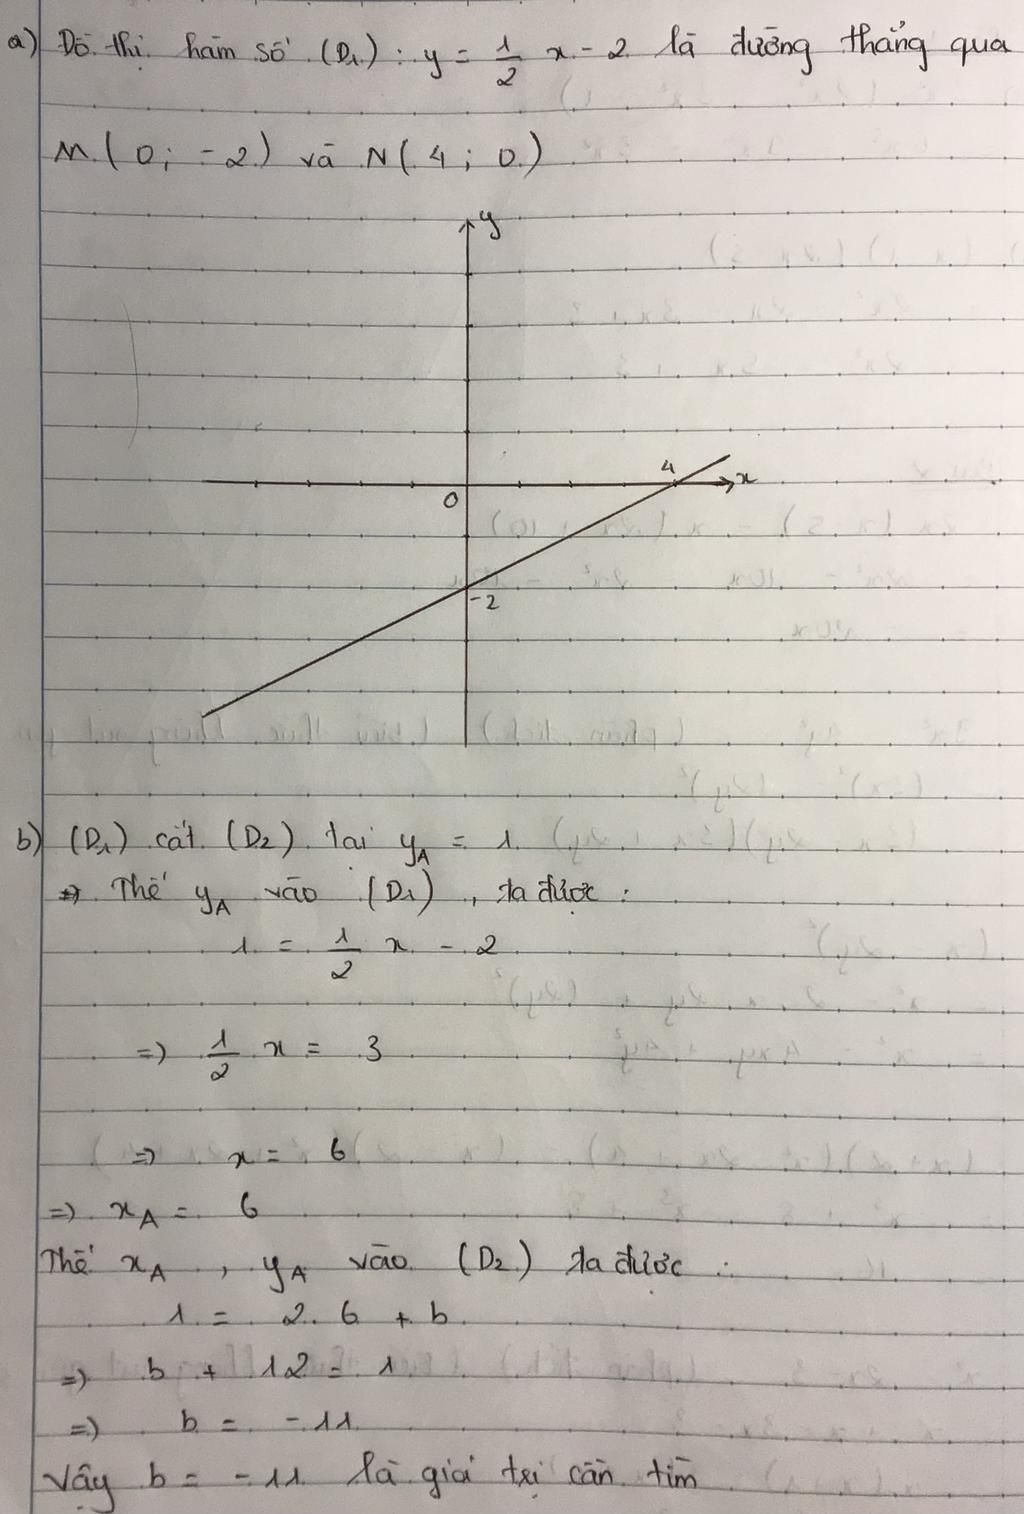 a) Đồ thị hàm số (D₁) : y = 1/2 x - 2 là đường thẳng qua
M ( 0 ; -2 ) và N ( 4 ; 0 )
y
4
x
0
-2
b) (D₁) cắt (D₂) tại y_A = 1
=> Thế y_A vào (D₁) , ta được :
1 = 1/2 x - 2
=> 1/2 x = 3
=> x = 6
=> x_A = 6
Thế x_A , y_A vào (D₂) ta được :
1 = 2. 6 + b
=> b + 12 = 1
=> b = -11
Vậy b = -11 là giá trị cần tìm